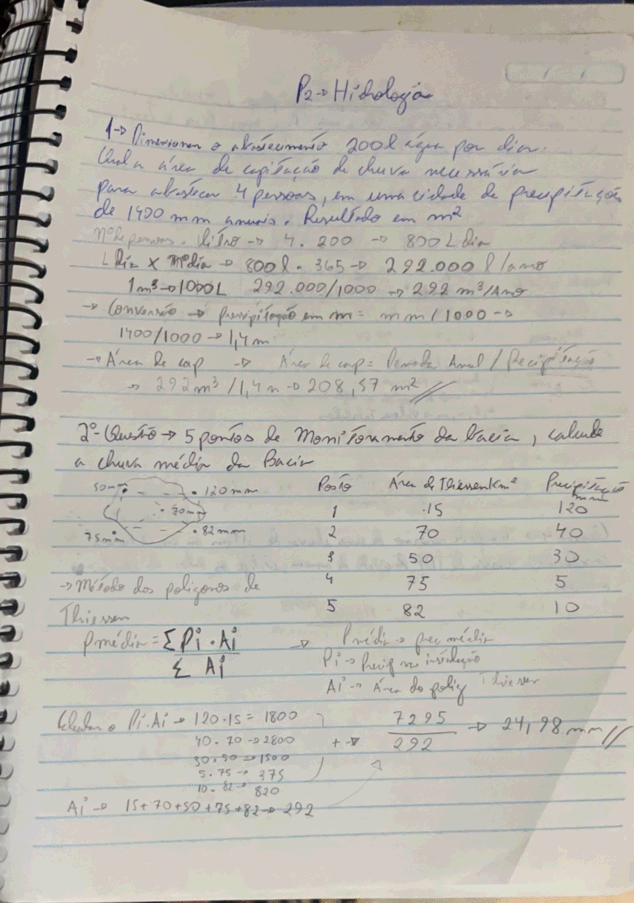 P2 → Hidrologia
1 → Dimensionar o abastecimento 200l água por dia.
Qual a área de capitação de chuva necessária
para abastecer 4 pessoas, em uma cidade de precipitação
de 1400 mm anuais. Resultado em m²
Nº de pessoas . litro → 4 . 200 → 800 L dia
L Dia x média → 800 l . 365 → 292.000 l/ano
1 m³ → 1000L 292.000/1000 → 292 m³/Ano
→ Conversão → precipitação em m = mm / 1000 →
1400/1000 → 1,4 m
→ Área de cap → Área de cap = Demanda Anual / Precipitação
→ 292 m³ / 1,4 m → 208,57 m²
2º - Questão → 5 pontos de Monitoramento da bacia, calcule
a chuva média da Bacia
50mm 120mm
30mm
75mm 82mm
Posto Área de Thiessen Km² Precipitação mm
1 15 120
2 70 40
3 50 30
4 75 5
5 82 10
→ Método dos polígonos de
Thiessen
Pmédia = Σ Pi . Ai / Σ Ai
→ Pmédia → prec média
Pi → Precip na instalação
Ai → Área do polig Thiessen
Calcular o Pi.Ai → 120.15 = 1800
40.70 → 2800
30.50 → 1500
5.75 → 375
10.82 → 820
+ → 7295 / 292 → 24,98 mm
Ai → 15+70+50+75+82 → 292